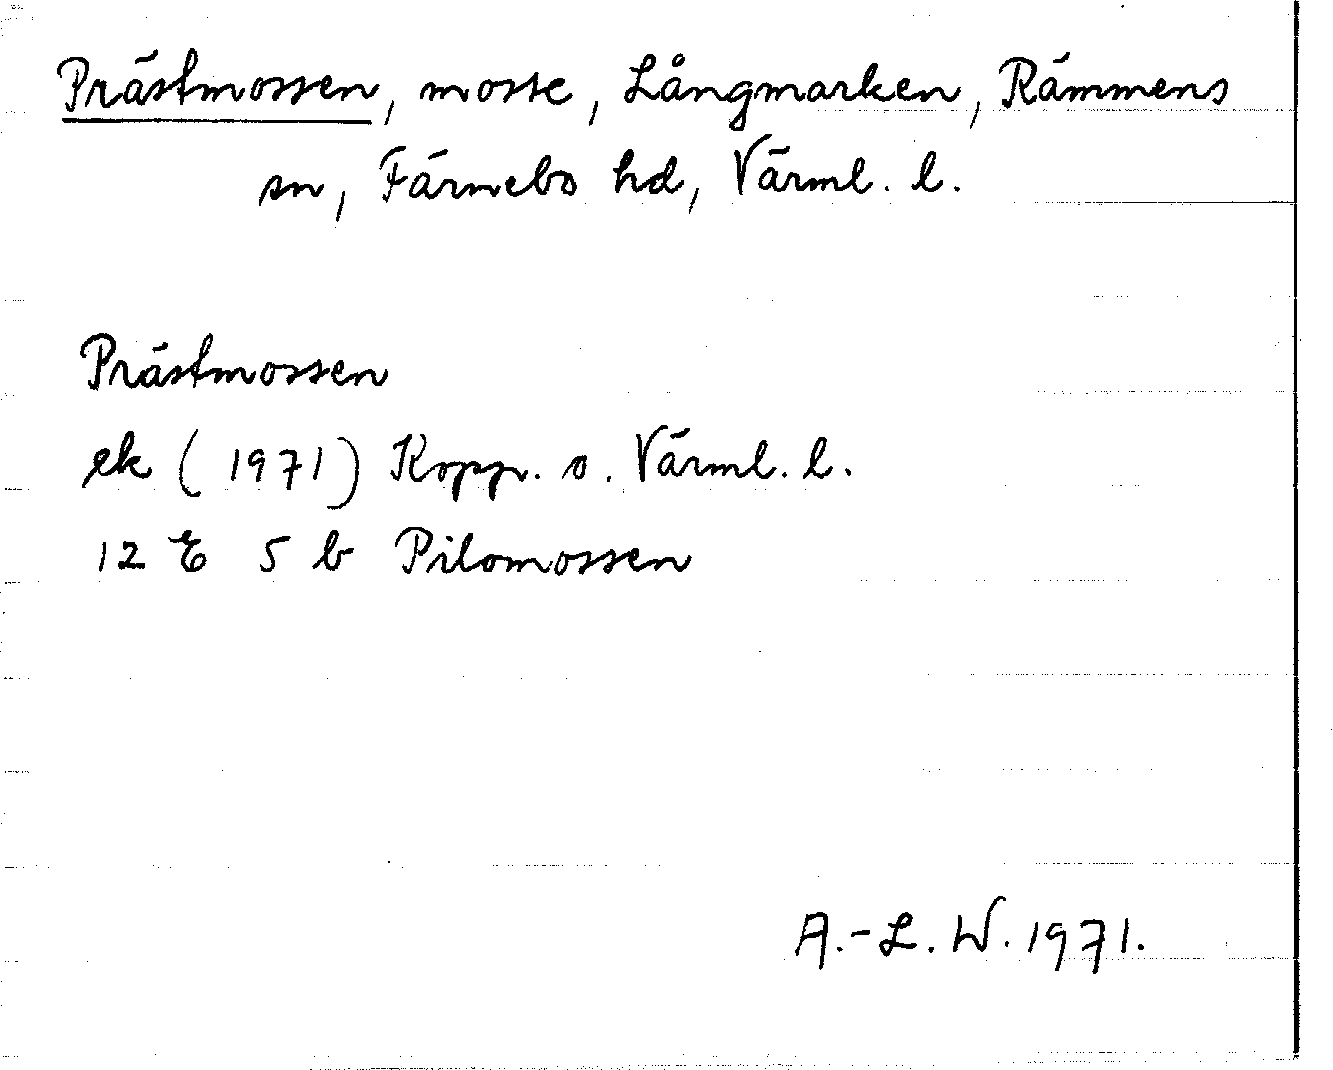 Prästmossen, mosse, Långmarken, Rämmens
sn, Färnebo hd, Värml. l.
Prästmossen
ek (1971) Kopp. o. Värml. l.
12 E 5 b Pilomossen
A.-L. W. 1971.